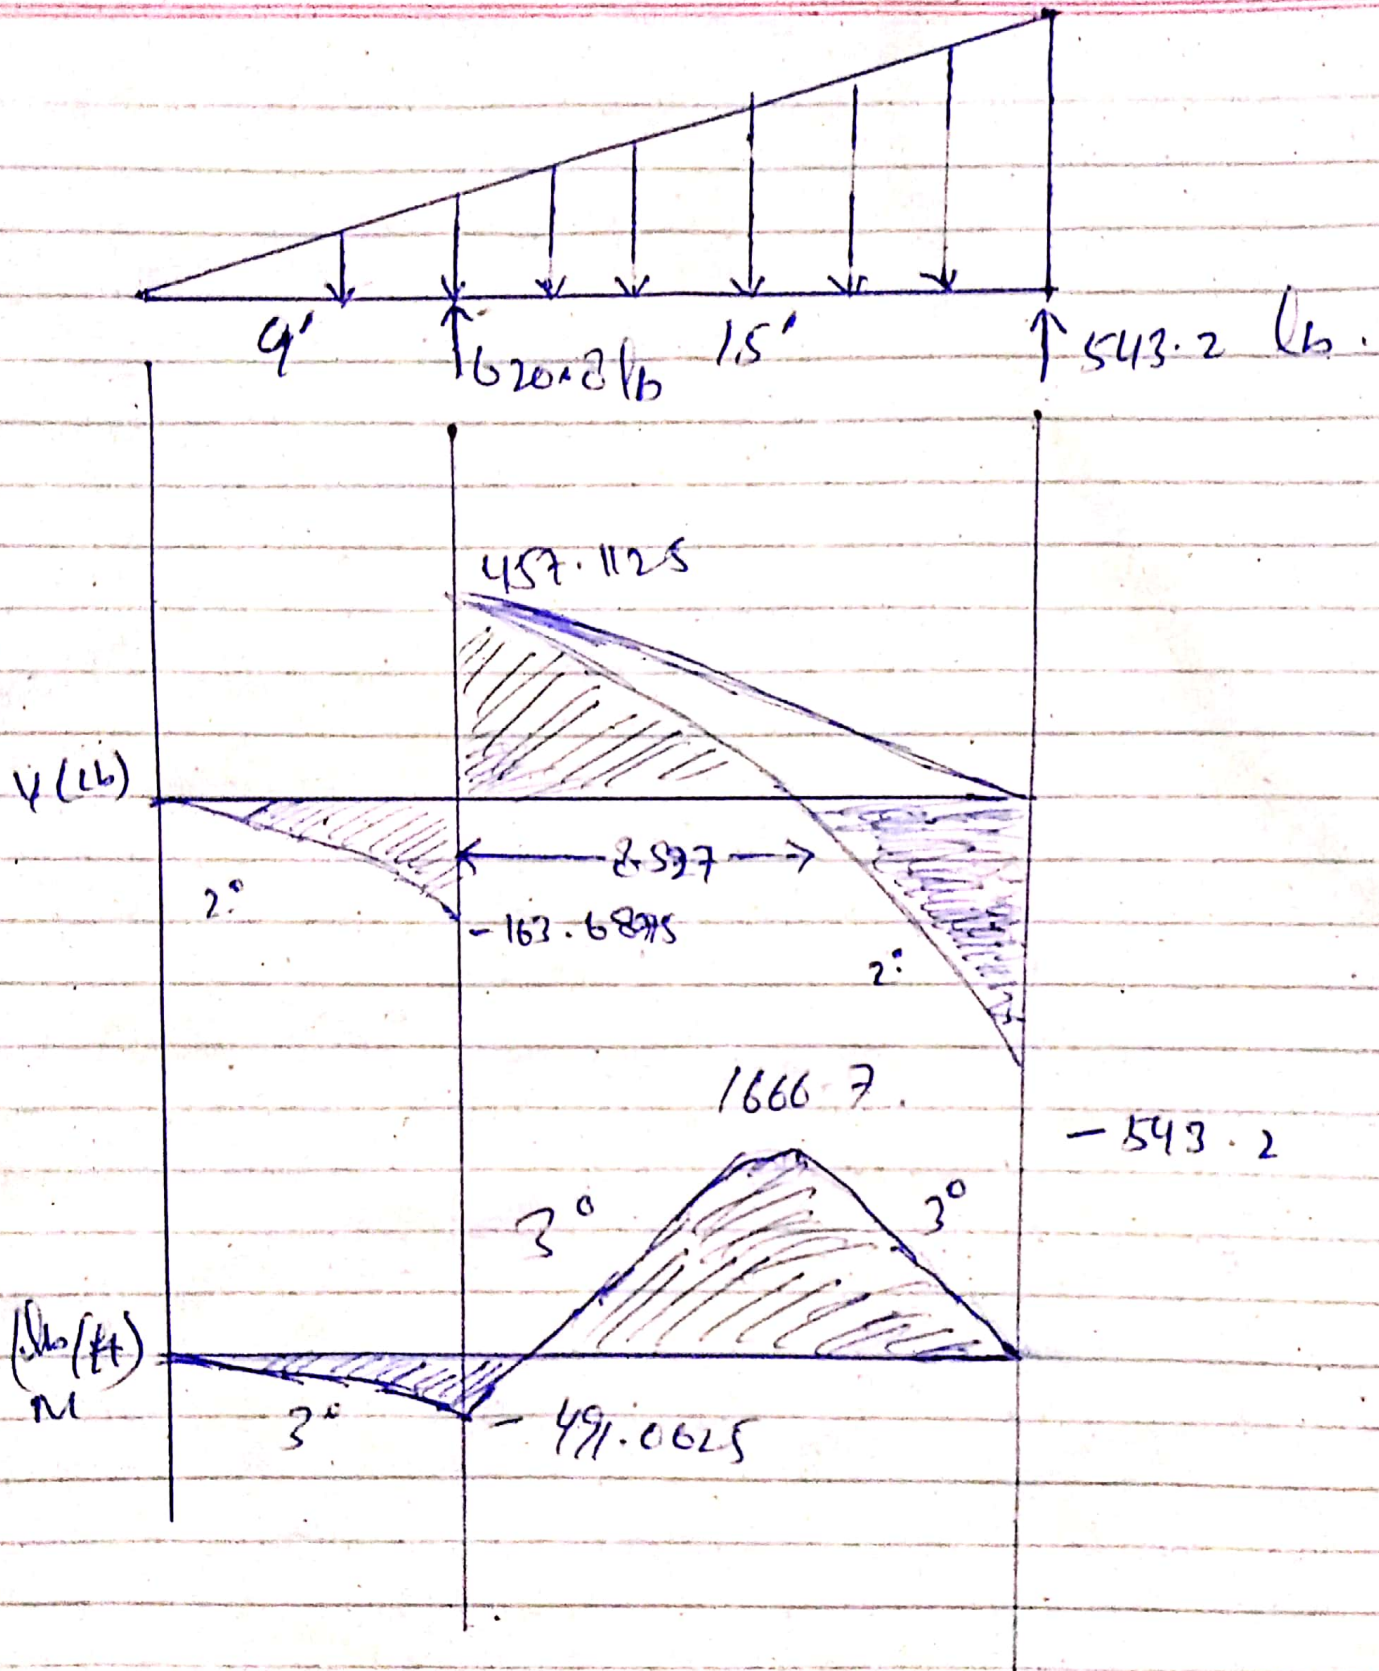 9' 620.8 lb 15' 543.2 lb.
457.1125
V (lb)
8.597
2°
-163.6875
2°
1666.7
-543.2
3° 3°
(lb/ft)
M
3° - 491.0625